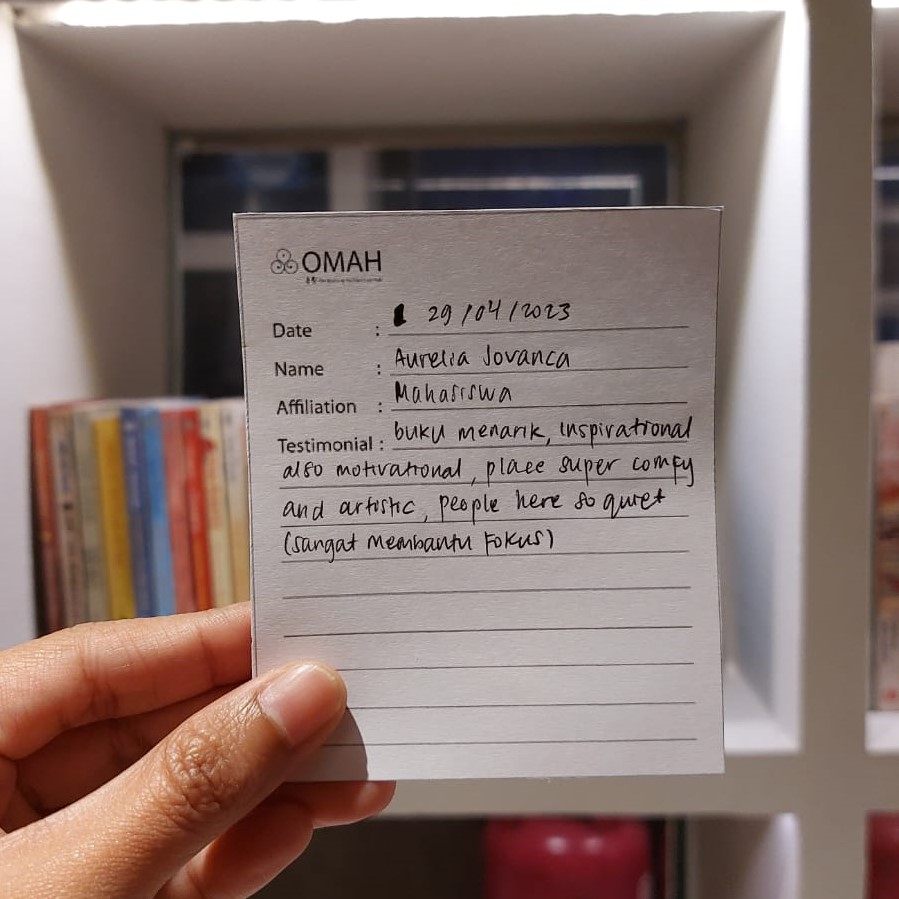 OMAH
Date : 29/04/2023
Name : Aurelia Jovanca
Affiliation : Mahasiswa
Testimonial : buku menarik, inspirational
also motivational, place super comfy
and artistic, people here so quiet
(sangat membantu fokus)